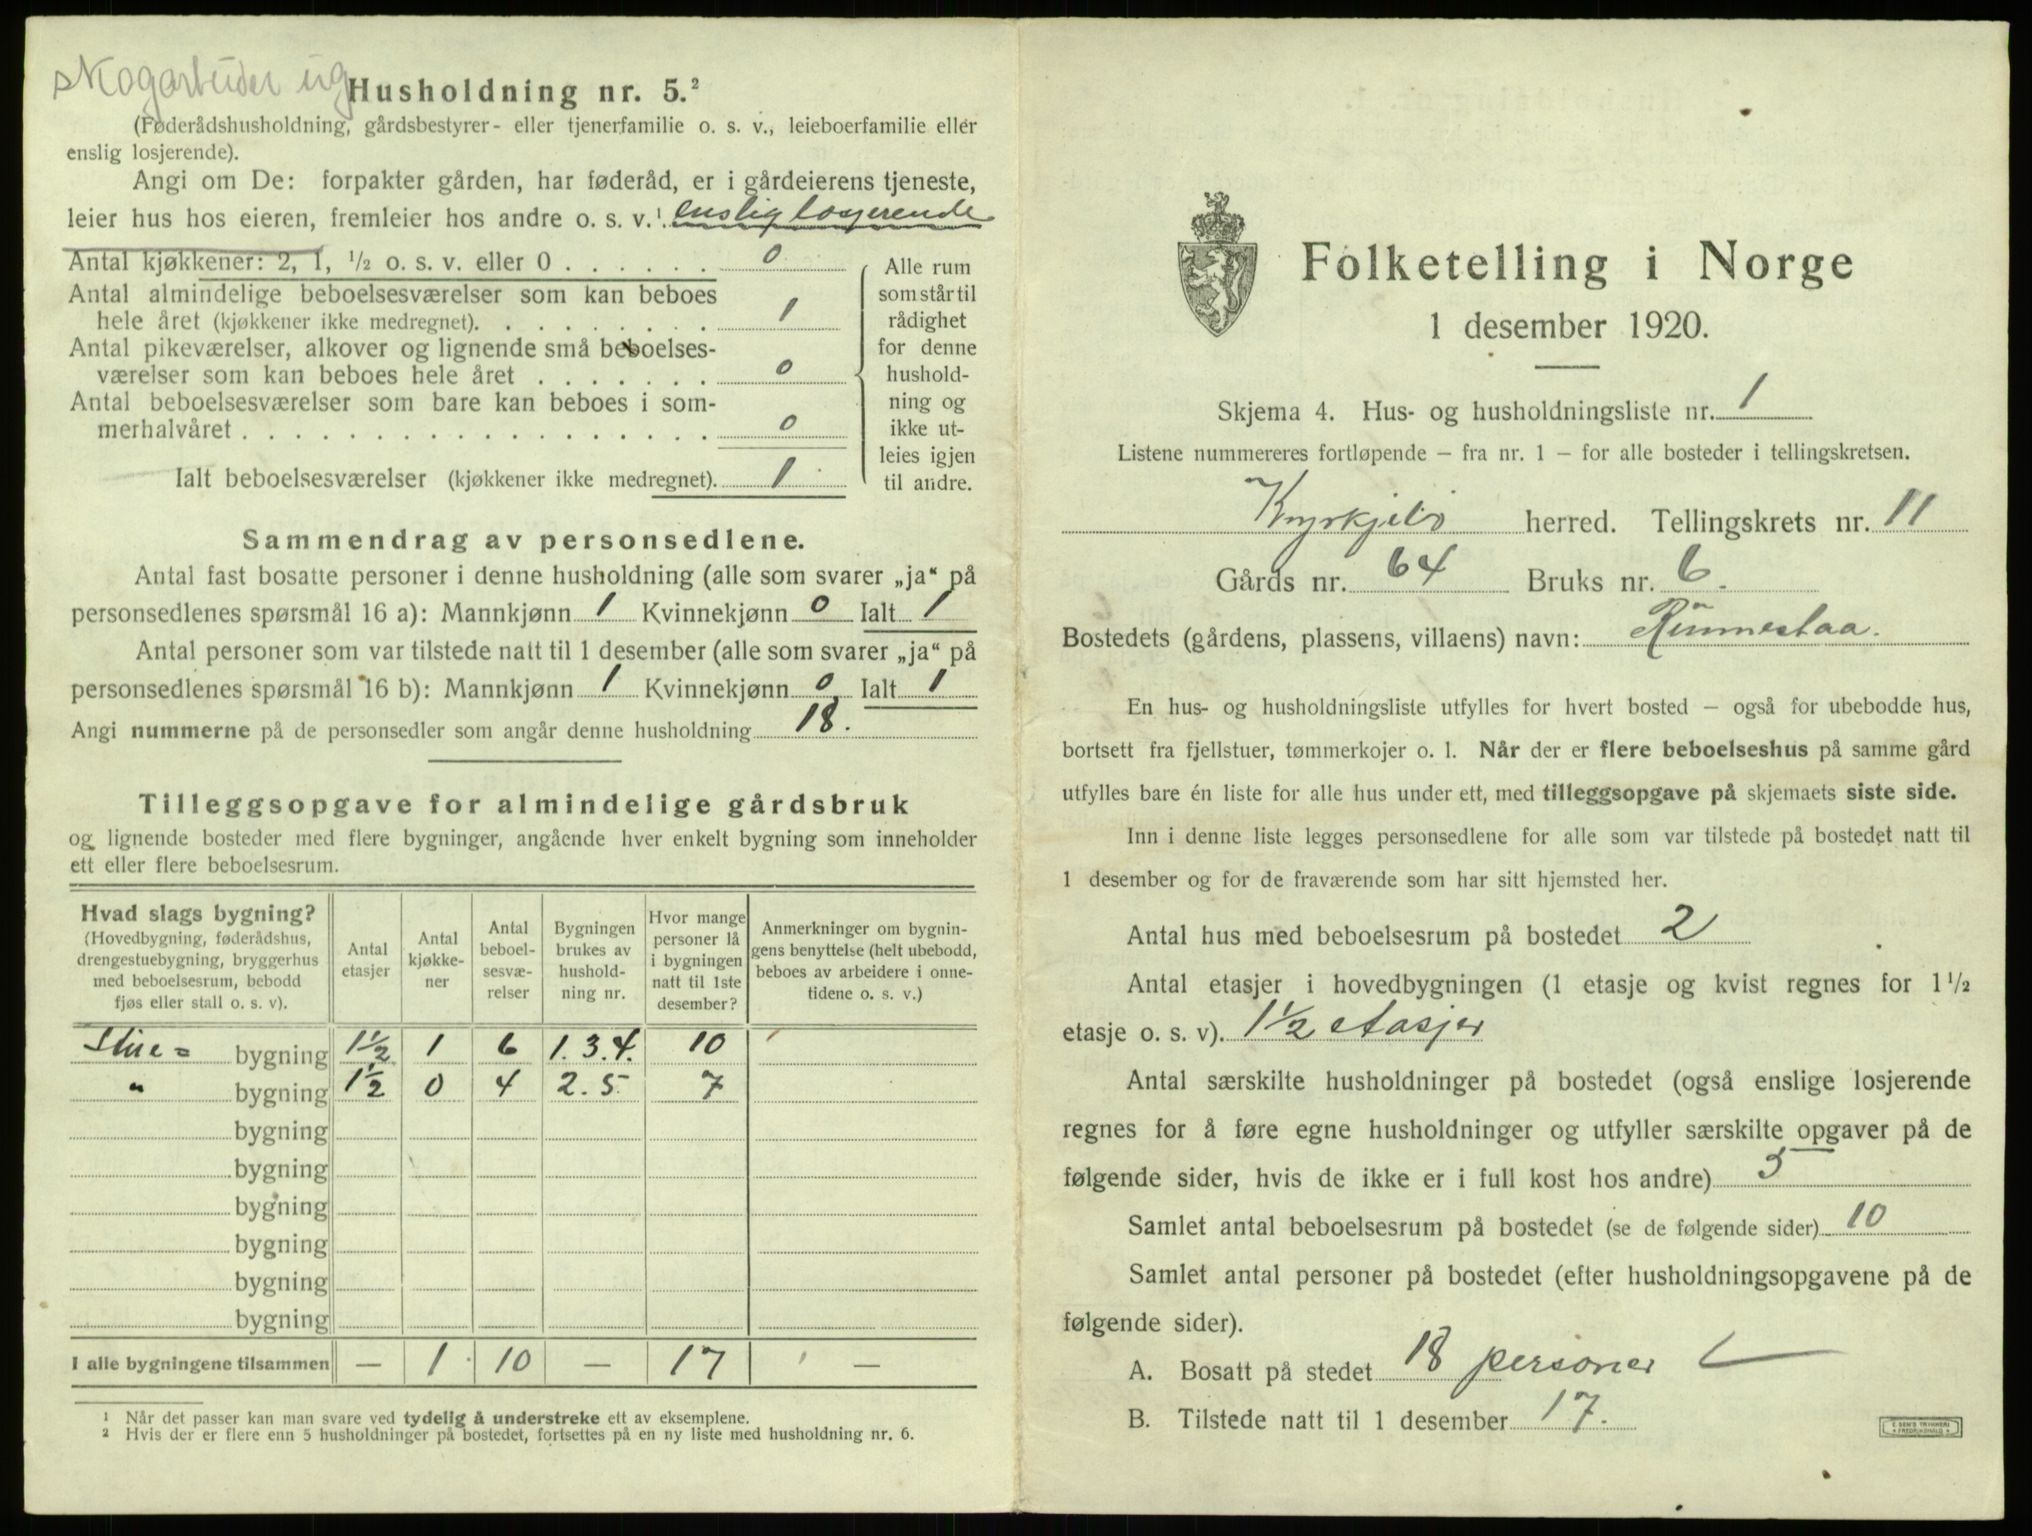 skogarbeider ug
Husholdning nr. 5.²
(Føderådshusholdning, gårdsbestyrer- eller tjenerfamilie o. s. v., leieboerfamilie eller
enslig losjerende).
Angi om De: forpakter gården, har føderåd, er i gårdeierens tjeneste,
leier hus hos eieren, fremleier hos andre o. s. v.¹ enslig losjerende
Antal kjøkkener: 2, 1, ½ o. s. v. eller 0 . . . . . . 0
Antal almindelige beboelsesværelser som kan beboes
hele året (kjøkkener ikke medregnet). . . . . . . . . 1
Antal pikeværelser, alkover og lignende små beboelses-
værelser som kan beboes hele året . . . . . . . 0
Antal beboelsesværelser som bare kan beboes i som-
merhalvåret . . . . . . . . . . . . . . . . . . 0
Ialt beboelsesværelser (kjøkkener ikke medregnet). 1
Alle rum
som står til
rådighet
for denne
hushold-
ning og
ikke ut-
leies igjen
til andre.
Sammendrag av personsedlene.
Antal fast bosatte personer i denne husholdning (alle som svarer „ja“ på
personsedlenes spørsmål 16 a): Mannkjønn 1 Kvinnekjønn 0 Ialt 1
Antal personer som var tilstede natt til 1 desember (alle som svarer „ja“ på
personsedlenes spørsmål 16 b): Mannkjønn 1 Kvinnekjønn 0 Ialt 1
Angi nummerne på de personsedler som angår denne husholdning 18.
Tilleggsopgave for almindelige gårdsbruk
og lignende bosteder med flere bygninger, angående hver enkelt bygning som inneholder
ett eller flere beboelsesrum.
Hvad slags bygning?
(Hovedbygning, føderådshus,
drengestuebygning, bryggerhus
med beboelsesrum, bebodd
fjøs eller stall o. s. v).
Antal
etasjer
Antal
kjøkke-
ner
Antal
beboel-
sesvæ-
relser
Bygningen
brukes av
hushold-
ning nr.
Hvor mange
personer lå
i bygningen
natt til 1ste
desember?
Anmerkninger om bygnin-
gens benyttelse (helt ubebodd,
beboes av arbeidere i onne-
tidene o. s. v.)
Stue= bygning 1½ 1 6 1.3.4. 10
" bygning 1½ 0 4 2.5. 7
bygning
bygning
bygning
bygning
bygning
bygning
I alle bygningene tilsammen — 1 10 — 17 —
¹ Når det passer kan man svare ved tydelig å understreke ett av eksemplene.
² Hvis der er flere enn 5 husholdninger på bostedet, fortsettes på en ny liste med husholdning nr. 6.
Folketelling i Norge
1 desember 1920.
Skjema 4. Hus- og husholdningsliste nr. 1
Listene nummereres fortløpende — fra nr. 1 — for alle bosteder i tellingskretsen.
Kyrkjebø herred. Tellingskrets nr. 11
Gårds nr. 64 Bruks nr. 6.
Bostedets (gårdens, plassens, villaens) navn: Rinnestaa.
En hus- og husholdningsliste utfylles for hvert bosted — også for ubebodde hus,
bortsett fra fjellstuer, tømmerkojer o. l. Når der er flere beboelseshus på samme gård
utfylles bare én liste for alle hus under ett, med tilleggsopgave på skjemaets siste side.
Inn i denne liste legges personsedlene for alle som var tilstede på bostedet natt til
1 desember og for de fraværende som har sitt hjemsted her.
Antal hus med beboelsesrum på bostedet 2
Antal etasjer i hovedbygningen (1 etasje og kvist regnes for 1½
etasje o. s. v). 1½ etasjer
Antal særskilte husholdninger på bostedet (også enslige losjerende
regnes for å føre egne husholdninger og utfyller særskilte opgaver på de
følgende sider, hvis de ikke er i full kost hos andre) 5
Samlet antal beboelsesrum på bostedet (se de følgende sider) 10
Samlet antal personer på bostedet (efter husholdningsopgavene på de
følgende sider).
A. Bosatt på stedet 18 personer
B. Tilstede natt til 1 desember 17.